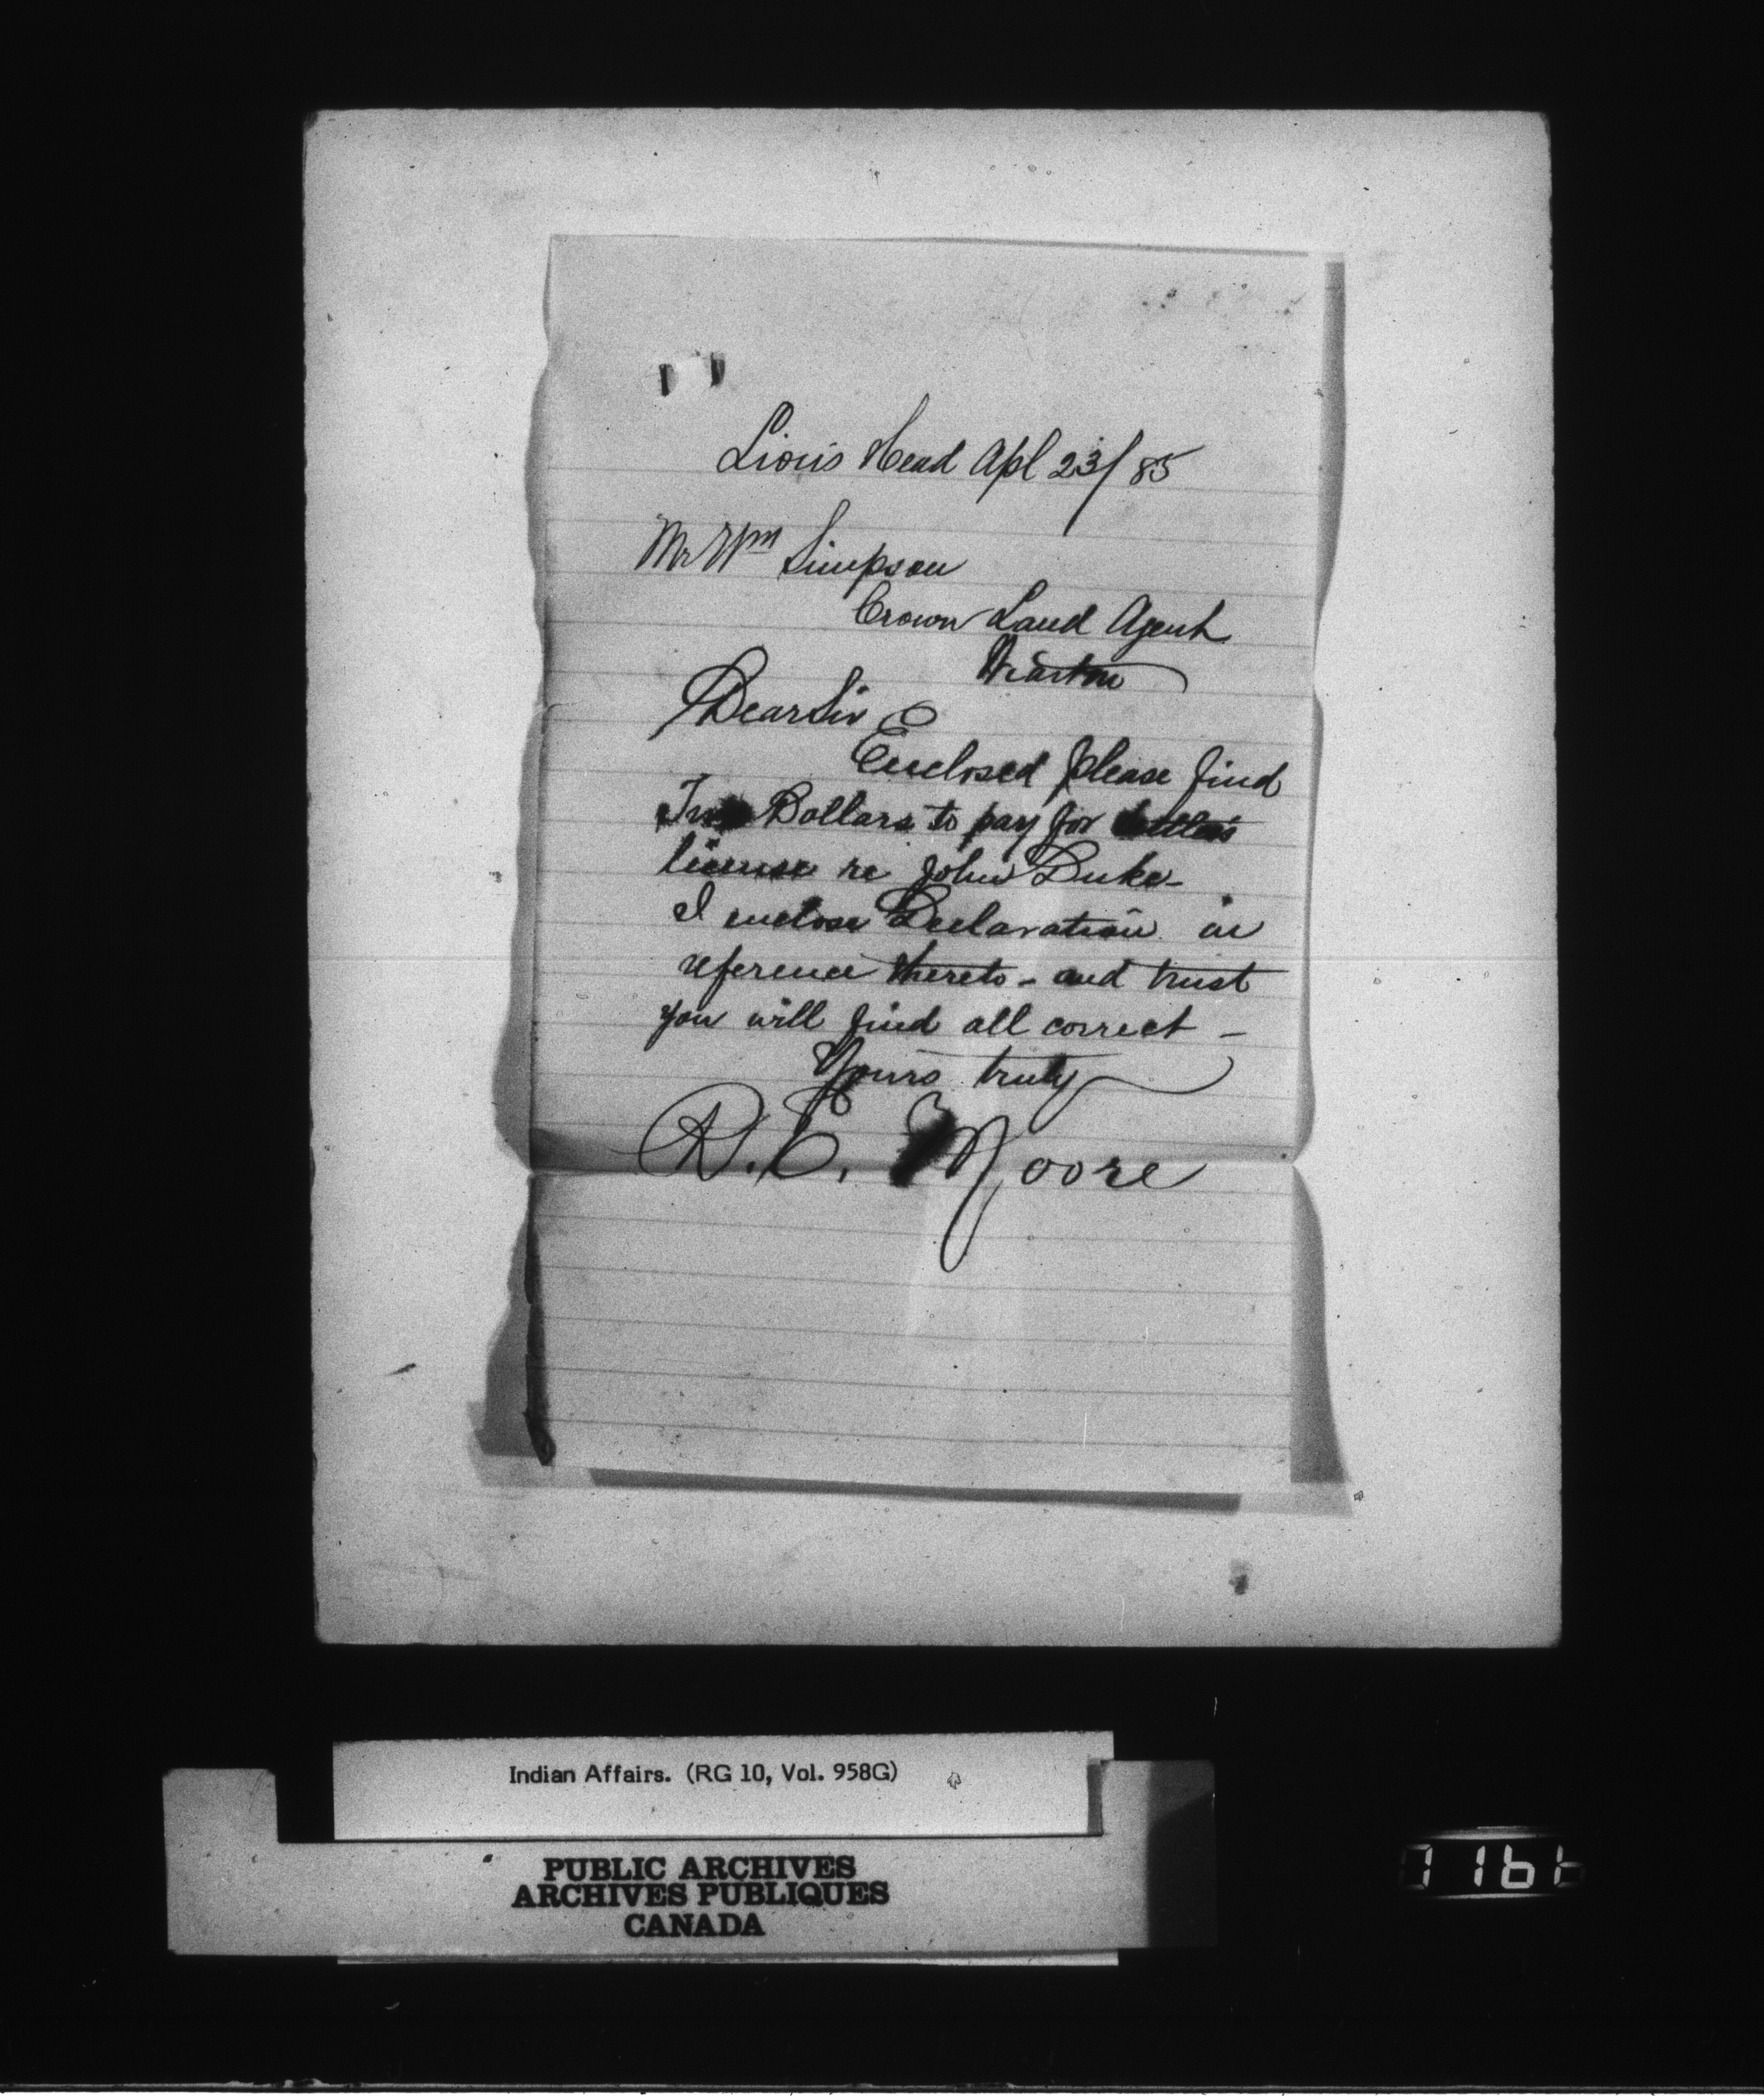 Lion's Head Apl 23/85
Mr Wm Simpson
Crown Land Agent
Wiarton
Dear Sir
Enclosed please find
Two Dollars to pay for settler's
license re John Duke-
I enclose Declaration in
reference thereto - and trust
you will find all correct -
Yours truly
R. E. Moore
Indian Affairs. (RG 10, Vol. 958G)
PUBLIC ARCHIVES
ARCHIVES PUBLIQUES
CANADA